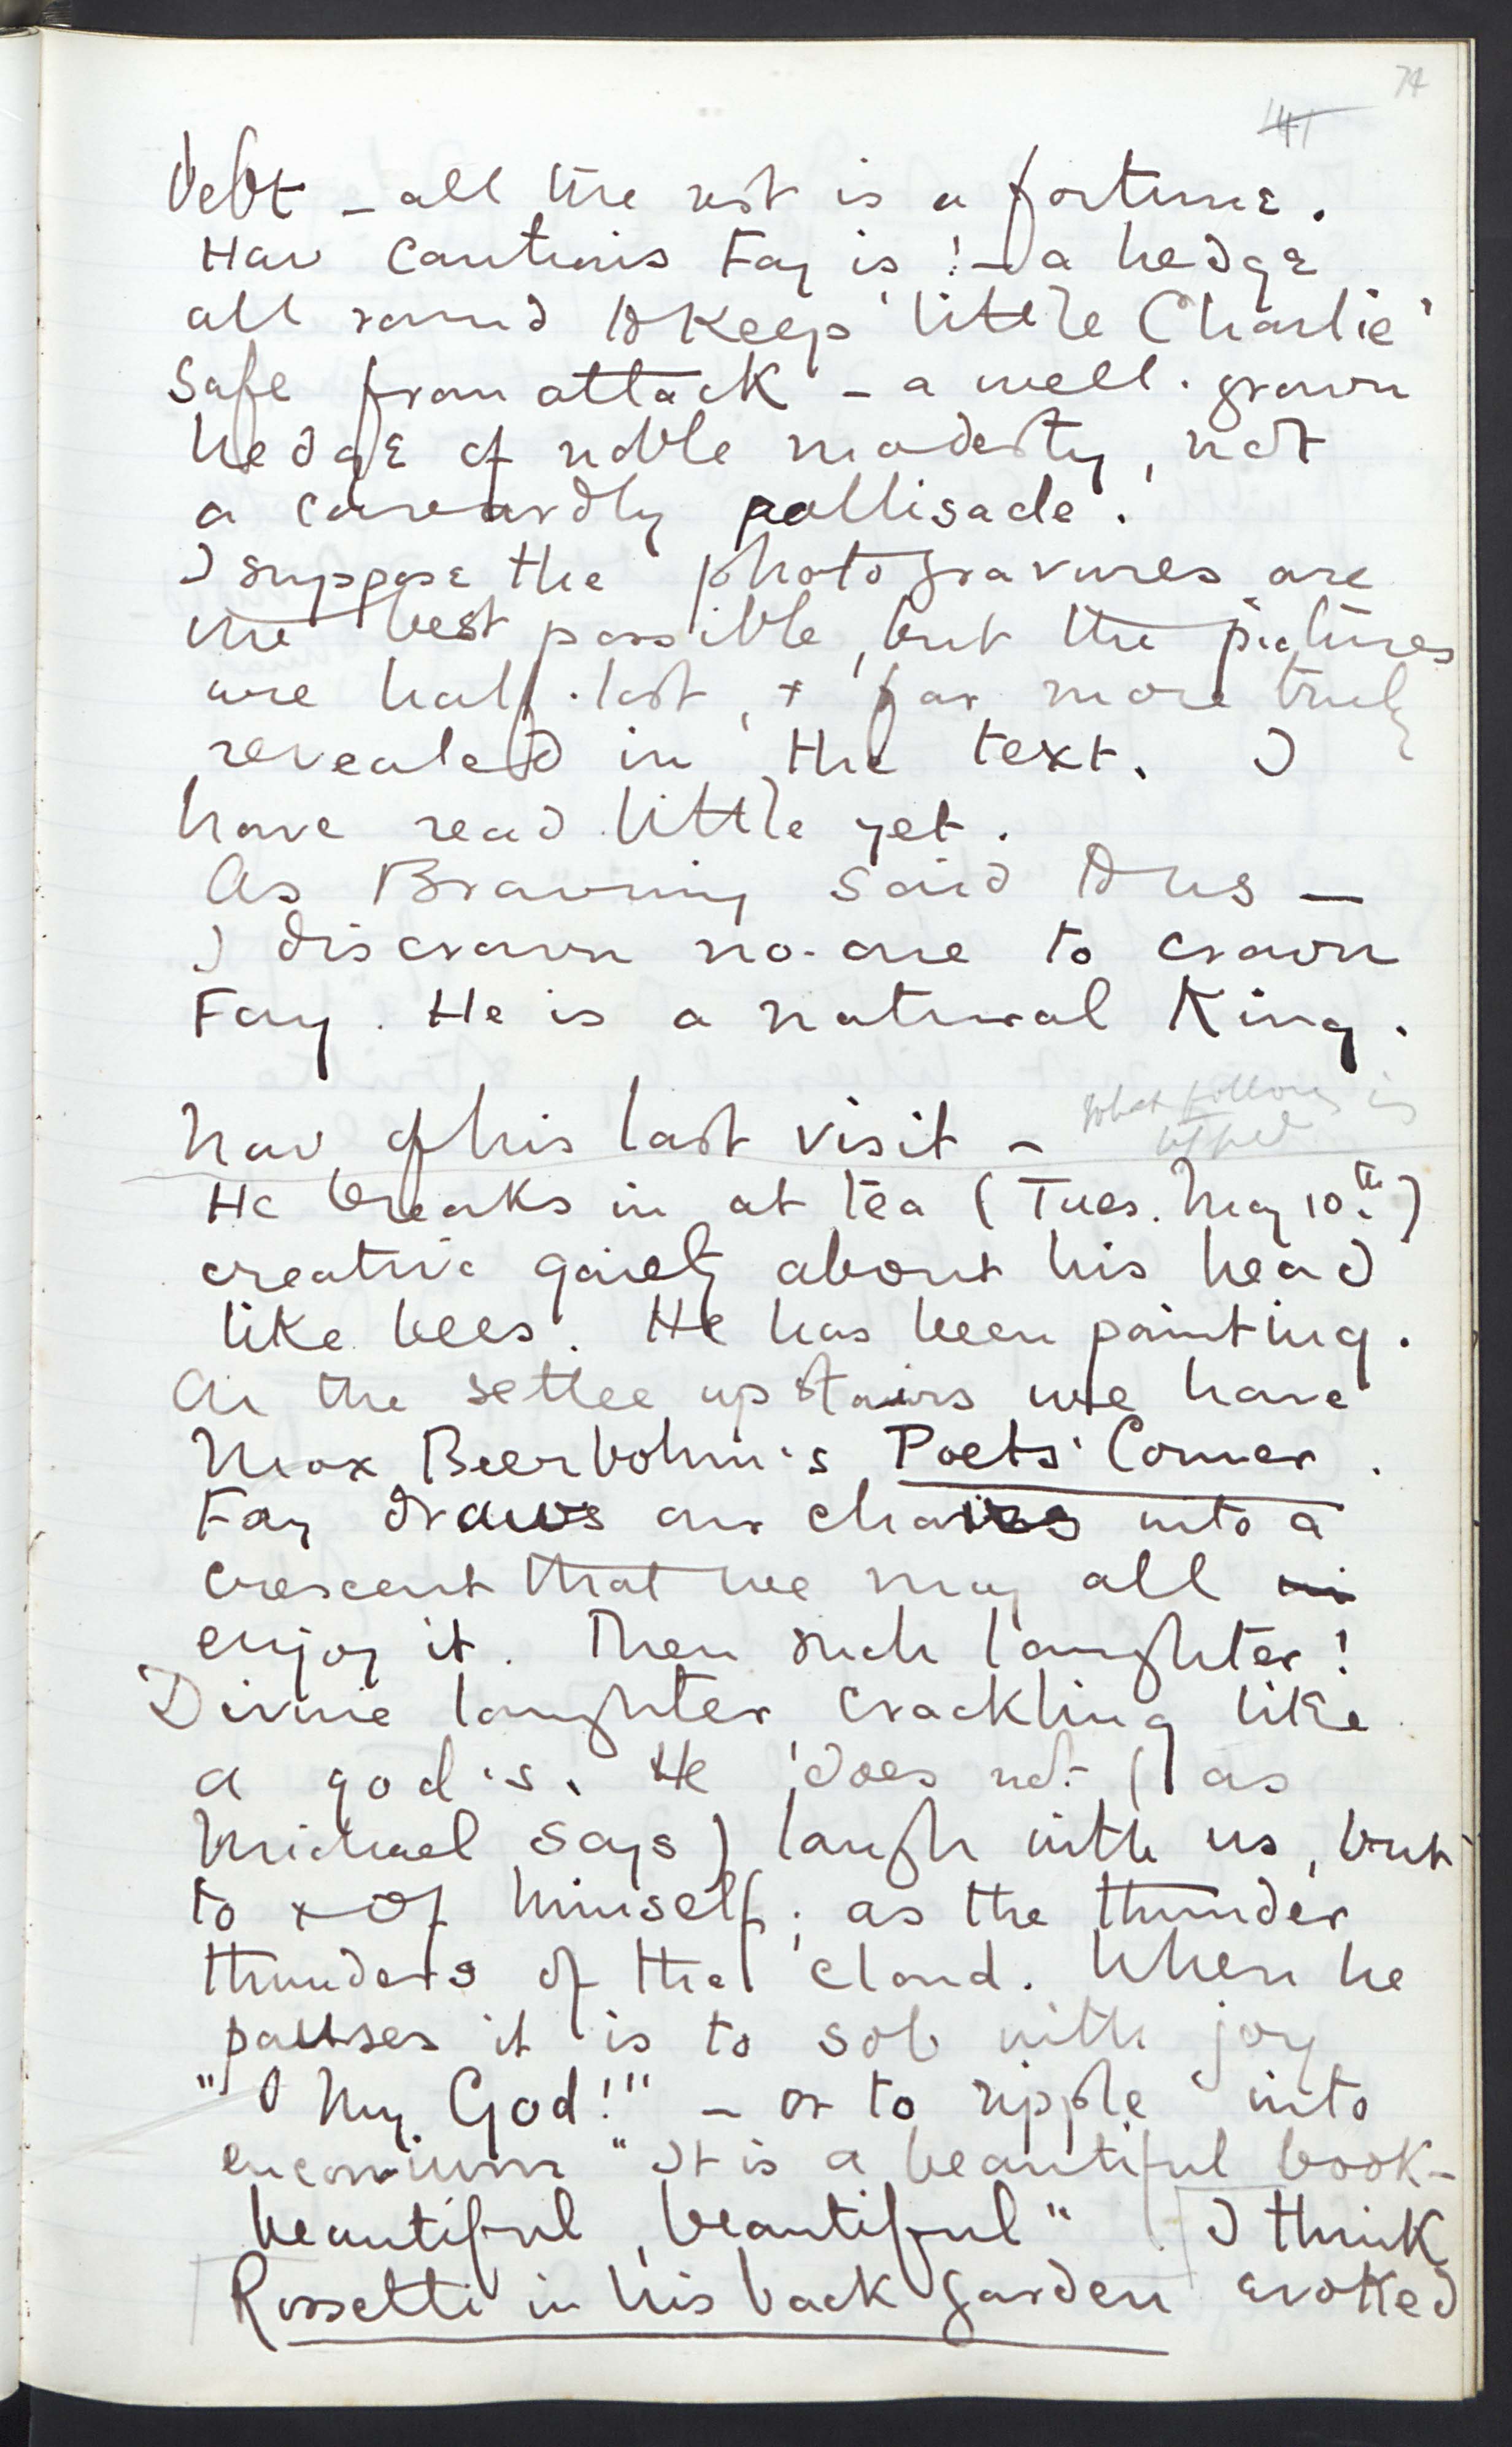 74
141
debt – all the rest is a fortune.
How cautious Fay is! – a hedge
all round to keep 'little Charlie'
safe from attack – a well-grown
hedge of noble modesty, not
a cowardly pallisade.
I suppose the photogravures are
the best possible, but the pictures
are half-lost, + far more truly
revealed in the text. I
have read little yet.
As Browning said to us –
I discrown no-one to crown
Fay. He is a natural King.
Now of his last visit –
what follows is
typed
He breaks in at tea (Tues. May 10th.)
creative gaiety about his head
like bees. He has been painting.
On the settee upstairs we have
Max Beerbohm's Poets' Corner.
Fay draws our chairs into a
crescent that we may all
enjoy it. Then such laughter!
Divine laughter, crackling like
a god's. He does not (as
Michael says) laugh with us, but
to + of himself; as the thunder
thunders of the cloud. When he
pauses it is to sob with joy
"O My God!" – or to ripple into
encomium "It is a beautiful book –
beautiful, beautiful". I think
Rossetti in his back garden evoked